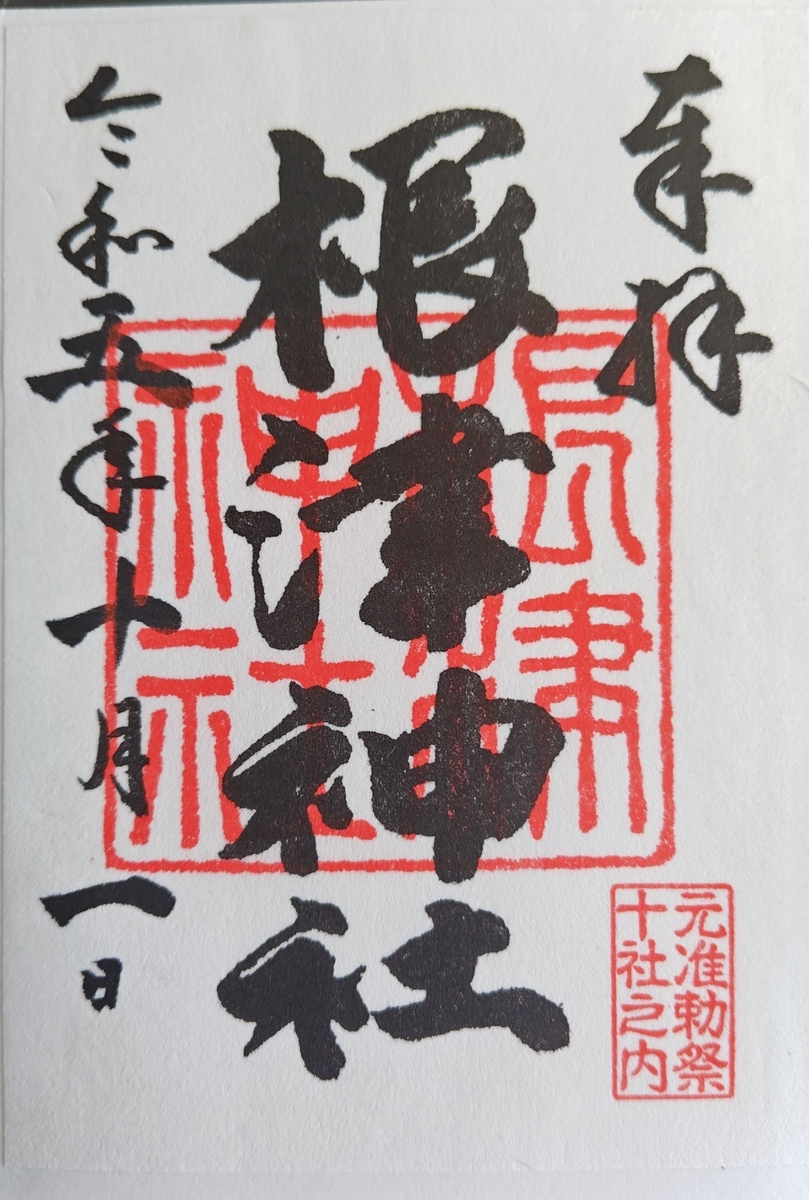 奉拝
根津神社
令和五年十月一日
根津
神社
元准勅祭
十社之内